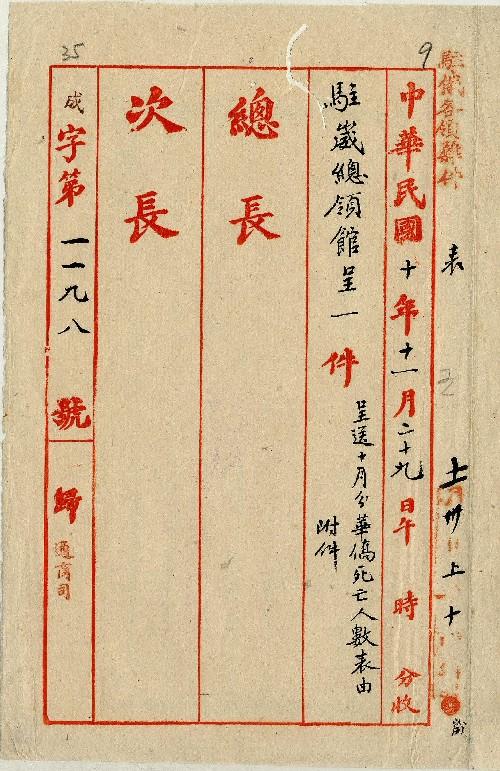 9
35
駐俄各領雜件
表
十一 卅 上 十
中華民國十年十一月二十九日午 時 分收
駐崴總領館呈一件
呈送十月分華僑死亡人數表由
附件
總長
次長
成字第一一九八號
歸通商司